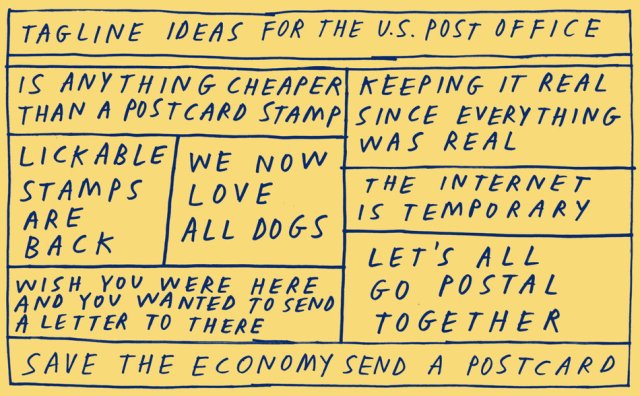 TAGLINE IDEAS FOR THE U.S. POST OFFICE
IS ANYTHING CHEAPER
THAN A POSTCARD STAMP
KEEPING IT REAL
SINCE EVERYTHING
WAS REAL
LICKABLE
STAMPS
ARE
BACK
WE NOW
LOVE
ALL DOGS
THE INTERNET
IS TEMPORARY
WISH YOU WERE HERE
AND YOU WANTED TO SEND
A LETTER TO THERE
LET'S ALL
GO POSTAL
TOGETHER
SAVE THE ECONOMY SEND A POSTCARD